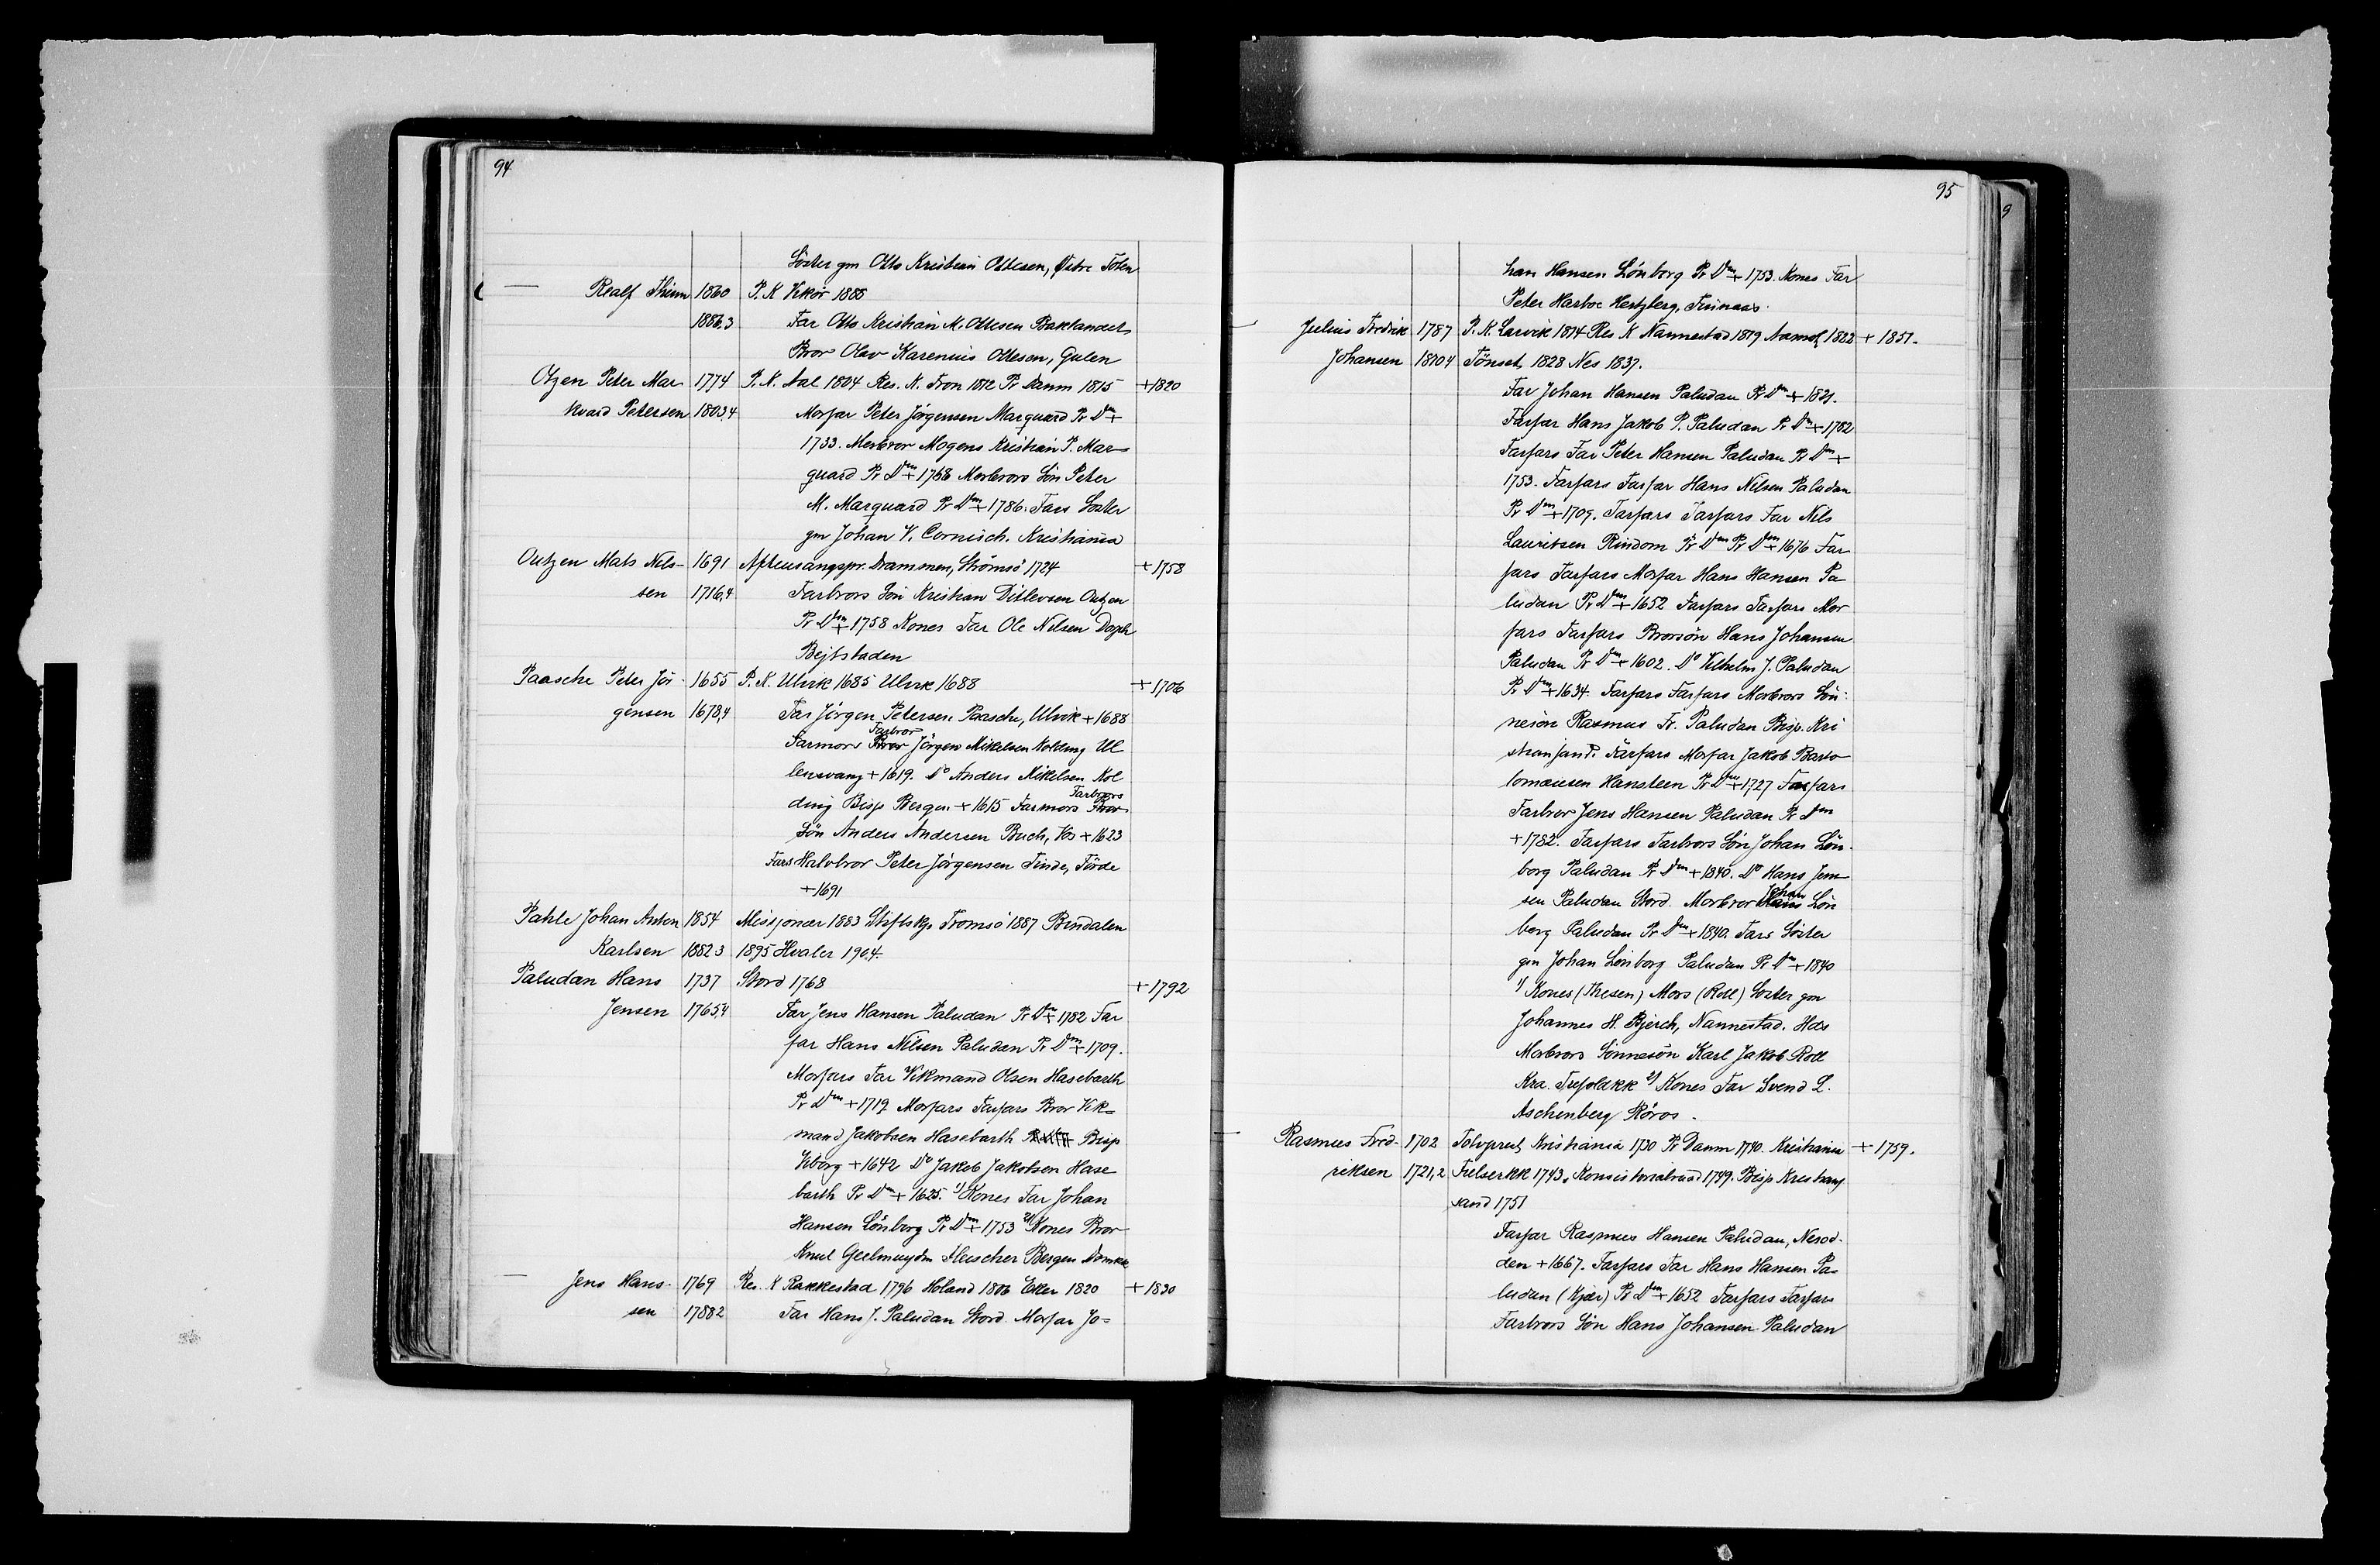 94
Söster gm Otto Kristian Ottesen, Östre Toten
— Realf Thinn 1860 P. K Vikör 1888
1886,3 Far Otto Kristian M. Ottesen Baklandet
Bror Olav Karenius Ottesen, Gulen
Otzen Peter Mar 1774 P. K. Aal 1804 Res. K. Fron 1812 Pr Danm 1815 +1820
kvard Petersen 1803,4 Morfar Peter Jörgensen Marquard Pr Dm +
1733. Morbror Mogens Kristian P. Mar-
quard Pr Dm + 1768 Morbrors Sön Peter
M. Marquard Pr Dm + 1786. Fars Söster
gm Johan V. Cornisch. Kristiania
Outzen Mats Nils- 1691 Aftensangspr. Drammen, Strömsö 1724 + 1758
sen 1716,4 Farbrors Sön Kristian Ditlevsen Outzen
Pr Dm + 1758 Kones Far Ole Nilsen Dorph
Bejtstaden
Paasche Peter Jör- 1655 P. K. Ulvik 1685 Ulvik 1688 + 1706
gensen 1678,4 Far Jörgen Petersen Paasche, Ulvik + 1688
Farbror
Farmors Bror Jörgen Mikelsen Kolding Ul
lensvang + 1619. Do Anders Mikelsen Kol
Farbrors
ding Bisp Bergen + 1615 Farmors Bror
Sön Anders Andersen Buch, Vos + 1623
Fars Halvbror Peter Jörgensen Finde, Förde
+ 1691
Pahle Johan Anton 1854 Missjonær 1883 Stiftskp Tromsö 1887 Bindalen
Karlsen 1882 3 1895 Hvaler 1904.
Paludan Hans 1737 Stord 1768 + 1792
Jensen 1765,4 Far Jens Hansen Paludan Pr Dm + 1782 Far
far Hans Nilsen Paludan Pr Dm + 1709.
Morfars Far Vikmand Olsen Hasebarth
Pr Dm + 1719 Morfars Farfars Bror Vik=
mand Jakobsen Hasebarth Bisp
Viborg + 1642 Do Jakob Jakobsen Hase
barth Pr Dm + 1625. 1) Kones Far Johan
Hansen Lönborg Pr Dm + 1753 2) Kones Bror
Knut Geelmuyden Fleischer Bergen Domkk
— Jens Hans- 1769 Res. K Rakkestad 1796 Höland 1806 Eker 1820 + 1830
sen 1788 2 Far Hans J. Paludan Stord. Morfar Jo=
95
9
han Hansen Lönborg Pr Dm + 1753. Kones Far
Peter Harboe Hertzberg, Finnaas.
— Julius Fredrik 1787 P. K. Larvik 1814 Res K Nannestad 1819 Aamot 1822 + 1851.
Johansen 1810 4 Tönset 1828 Nes 1837.
Far Johan Hansen Paludan Pr Dm + 1821.
Farfar Hans Jakob P. Paludan Pr Dm + 1782
Farfars Far Peter Hansen Paludan Pr Dm +
1753. Farfars Farfar Hans Nilsen Paludan
Pr Dm + 1709. Farfars Farfars Far Nils
Lauritsen Rindom Pr Dm Pr Dm + 1676 Far
fars Farfars Morfar Hans Hansen Pa
ludan Pr Dm + 1652 Farfars Farfars Mor
fars Farfars Brorsön Hans Johansen
Paludan Pr Dm + 1602. Do Vilhelm J. Paludan
Pr Dm + 1634. Farfars Farfars Morbrors Sön
nesön Rasmus Fr. Paludan Bisp. Kri
stiansand. Farfars Morfar Jakob Barto
lomæusen Hansteen Pr Dm + 1727 Farfars
Farbror Jens Hansen Paludan Pr Dm
+ 1782. Farfars Farbrors Sön Johan Lön
borg Paludan Pr Dm + 1840. Do Hans Jen
Johan
sen Paludan Stord. Morbror Hans Lön
borg Paludan Pr Dm + 1840. Fars Söster
gm Johan Lönborg Paludan Pr Dm + 1840
1) Kones (Thesen) Mors (Roll) Söster gm
Johannes H. Bjerch, Nannestad. Hdes
Morbrors Sönnesön Karl Jakob Roll
Kra. Trefoldkk 2) Kones Far Svend L.
Aschenberg Röros.
— Rasmus Fred- 1702 Tolvprest Kristiania 1730 Pr Danm 1740. Kristiania + 1759.
riksen 1721,2 Frelserkk 1743, Konsistorialraad 1749. Bisp Kristians
sand 1751
Farfar Rasmus Hansen Paludan, Nesod-
den + 1667. Farfars Far Hans Hansen Pa-
ludan (Kjær) Pr Dm + 1652 Farfars Farfars
Farbrors Sön Hans Johansen Paludan